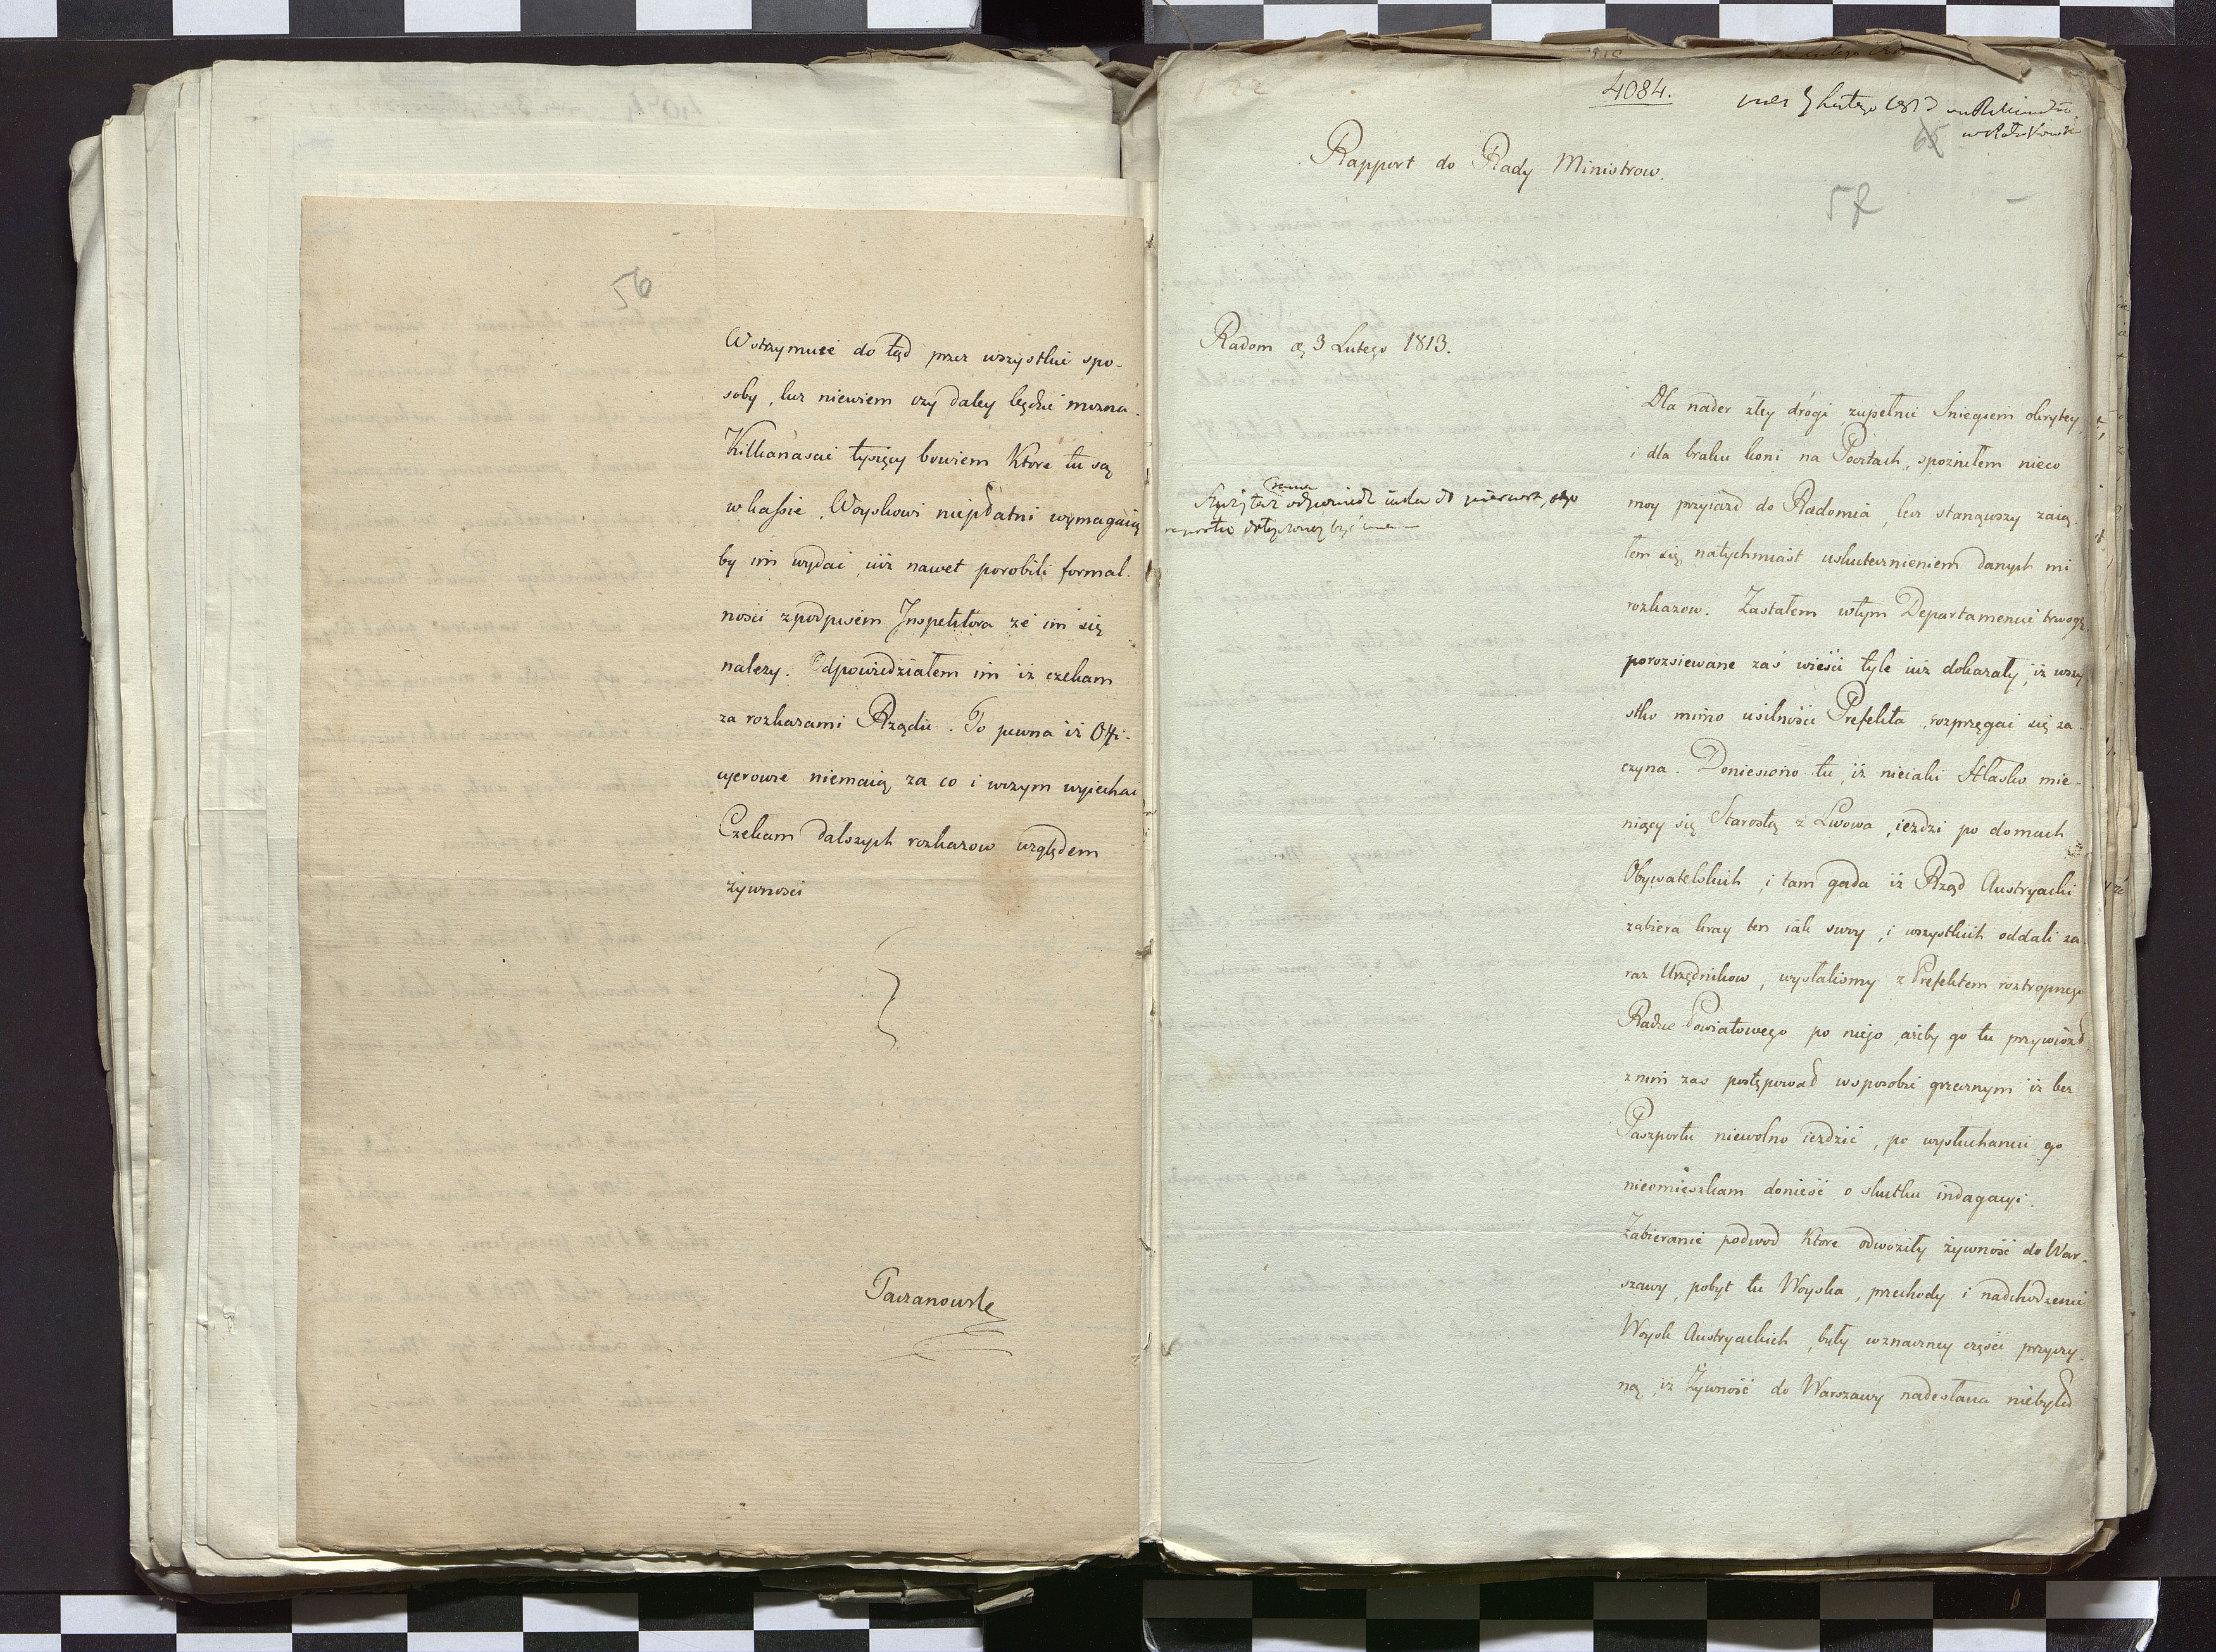 56
Wstrzymuię do tąd przez wszystkie spo-
soby, lecz niewiem czy daley będzie mozna.
Kilkanascie tysięcy bowiem które tu są
w kassie, Woyskowi niepłatni wymagaią
by im wydać, iuż nawet porobili formal-
ności z podpisem Inspektora że im się
należy. Odpowiedziałem im iż czekam
za rozkazami Rządu. To pewna iż Offi-
cyerowie niemaią za co i wczym wyjechać
Czekam dalszych rozkazow względem
żywności
Paczanowsk
4084.
5 Lutego 1813
Rapport do Rady Ministrow.
65
57
Radom d. 3 Lutego 1813.
odpowiedź do pierwsz.
być ma
Dla nader złey drógi, zupełnie Sniegiem okrytey,
i dla braku koni na Pocztach, spoznilem nieco
moy przyiazd do Radomia, lecz stanąwszy zaią-
łem się natychmiast uskutecznieniem danych mi
rozkazow. Zastałem wtym Departamencie trwogę,
porozsiewane zaś wieści tyle iuż dokazały, iż wszy-
stko mimo usilności Prefekta, rozprzęgać się za-
czyna. Doniesiono tu, iż nieiaki Hłasko mie-
niący się Starostą z Lwowa, ieździ po domach
Obywatelskich, i tam gada iż Rząd Austryacki
zabiera kray ten iak swoy, i wszystkich oddali za-
raz Urzędnikow, wysłalismy z Prefektem roztropnego
Radzcę Powiatowego po niego, ażeby go tu przywiozł
znim zaś postępował wsposobie grzecznym iż bez
Paszportu niewolno ieździć, po wysłuchaniu go
nieomieszkam donieść o skutku indagacyi.
Zabieranie podwod które odwoziły żywność do War-
szawy, pobyt tu Woyska, przechody i nadchodzenie
Woysk Austryackich, były wznaczney części przyczy-
ną, iż Żywność do Warszawy nadesłana niebyła